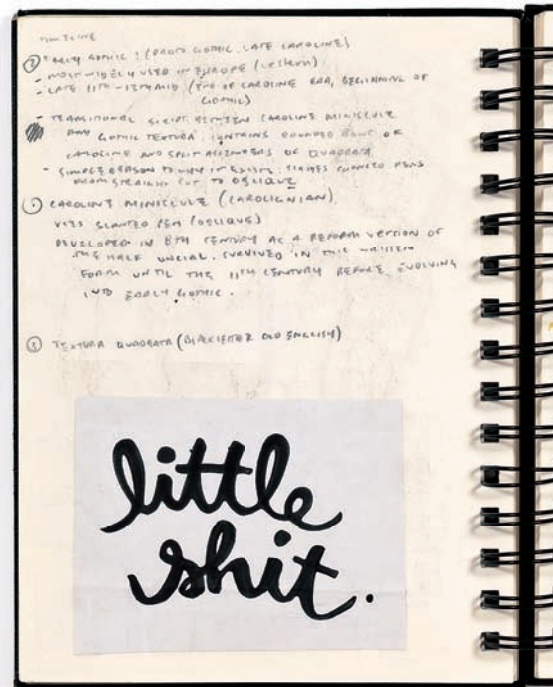 TIMELINE
② EARLY GOTHIC : (PROTO GOTHIC, LATE CAROLINE)
- MOST WIDELY USED IN EUROPE (WESTERN)
- LATE 11TH - 12TH MID (END OF CAROLINE ERA, BEGINNING OF
GOTHIC)
- TRANSITIONAL SCRIPT BETWEEN CAROLINE MINISCULE
AND GOTHIC TEXTURA. CONTAINS ROUNDED OF
CAROLINE AND SPLIT ASCENDERS OF QUADRATA
- SIMPLE REASON TO WHY IT EXISTS: SCRIBES CHANGED PENS
FROM STRAIGHT CUT TO OBLIQUE
① CAROLINE MINISCULE (CAROLIGNIAN)
USES SLANTED PEN (OBLIQUE)
DEVELOPED IN 8TH CENTURY AS A REFORM VERSION OF
THE HALF UNCIAL. SURVIVED IN THIS WRITTEN
FORM UNTIL THE 11TH CENTURY BEFORE EVOLVING
INTO EARLY GOTHIC.
③ TEXTURA QUADRATA (BLACKLETTER OLD ENGLISH)
little
shit.